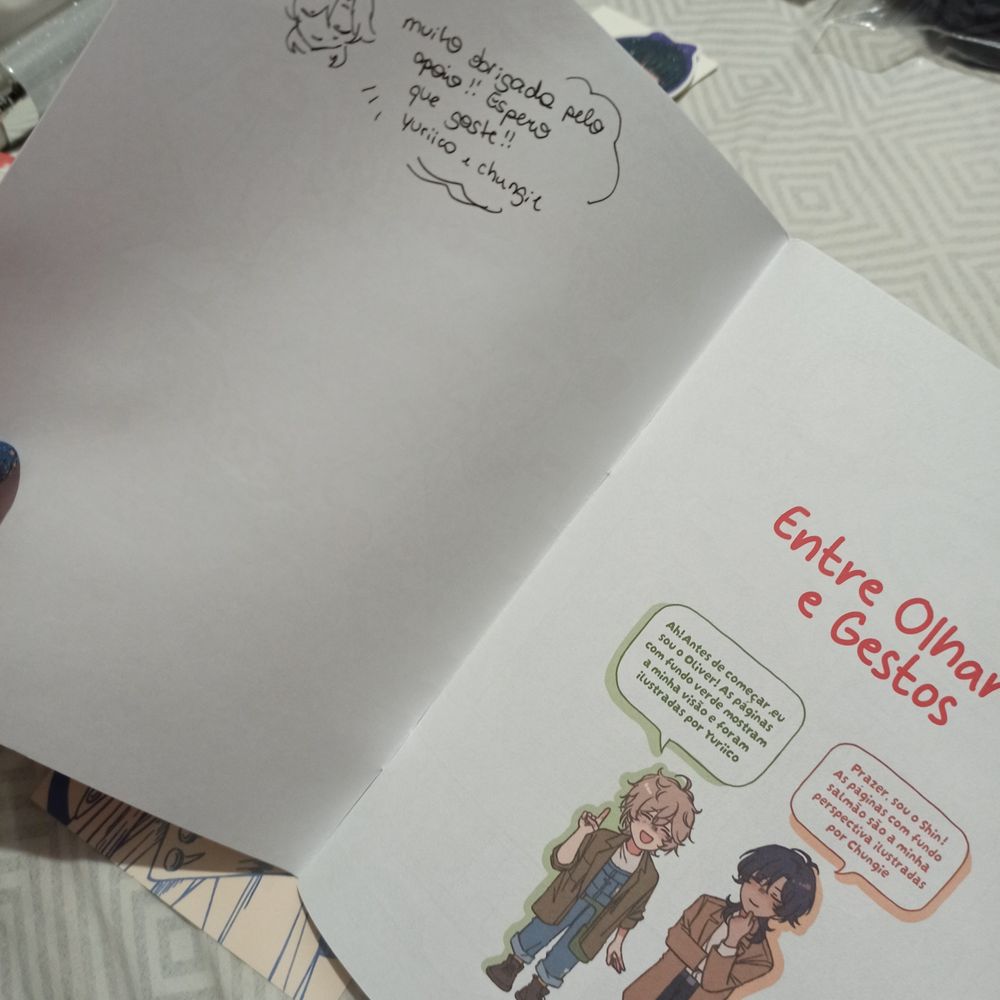 muito obrigada pelo
apoio!! Espero
que goste!!
Yuriico e chungie
Entre Olhar
e Gestos
Ah! Antes de começar, eu
sou o Oliver! As páginas
com fundo verde mostram
a minha visão e foram
ilustradas por Yuriico
Prazer, sou o Shin!
As páginas com fundo
salmão são a minha
perspectiva ilustradas
por Chungie